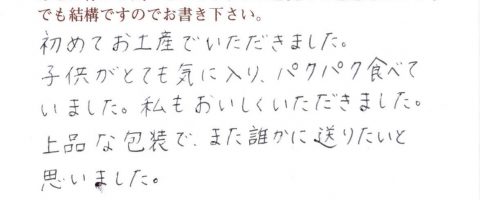 でも結構ですのでお書き下さい。
初めてお土産でいただきました。
子供がとても気に入り、パクパク食べて
いました。私もおいしくいただきました。
上品な包装で、また誰かに送りたいと
思いました。